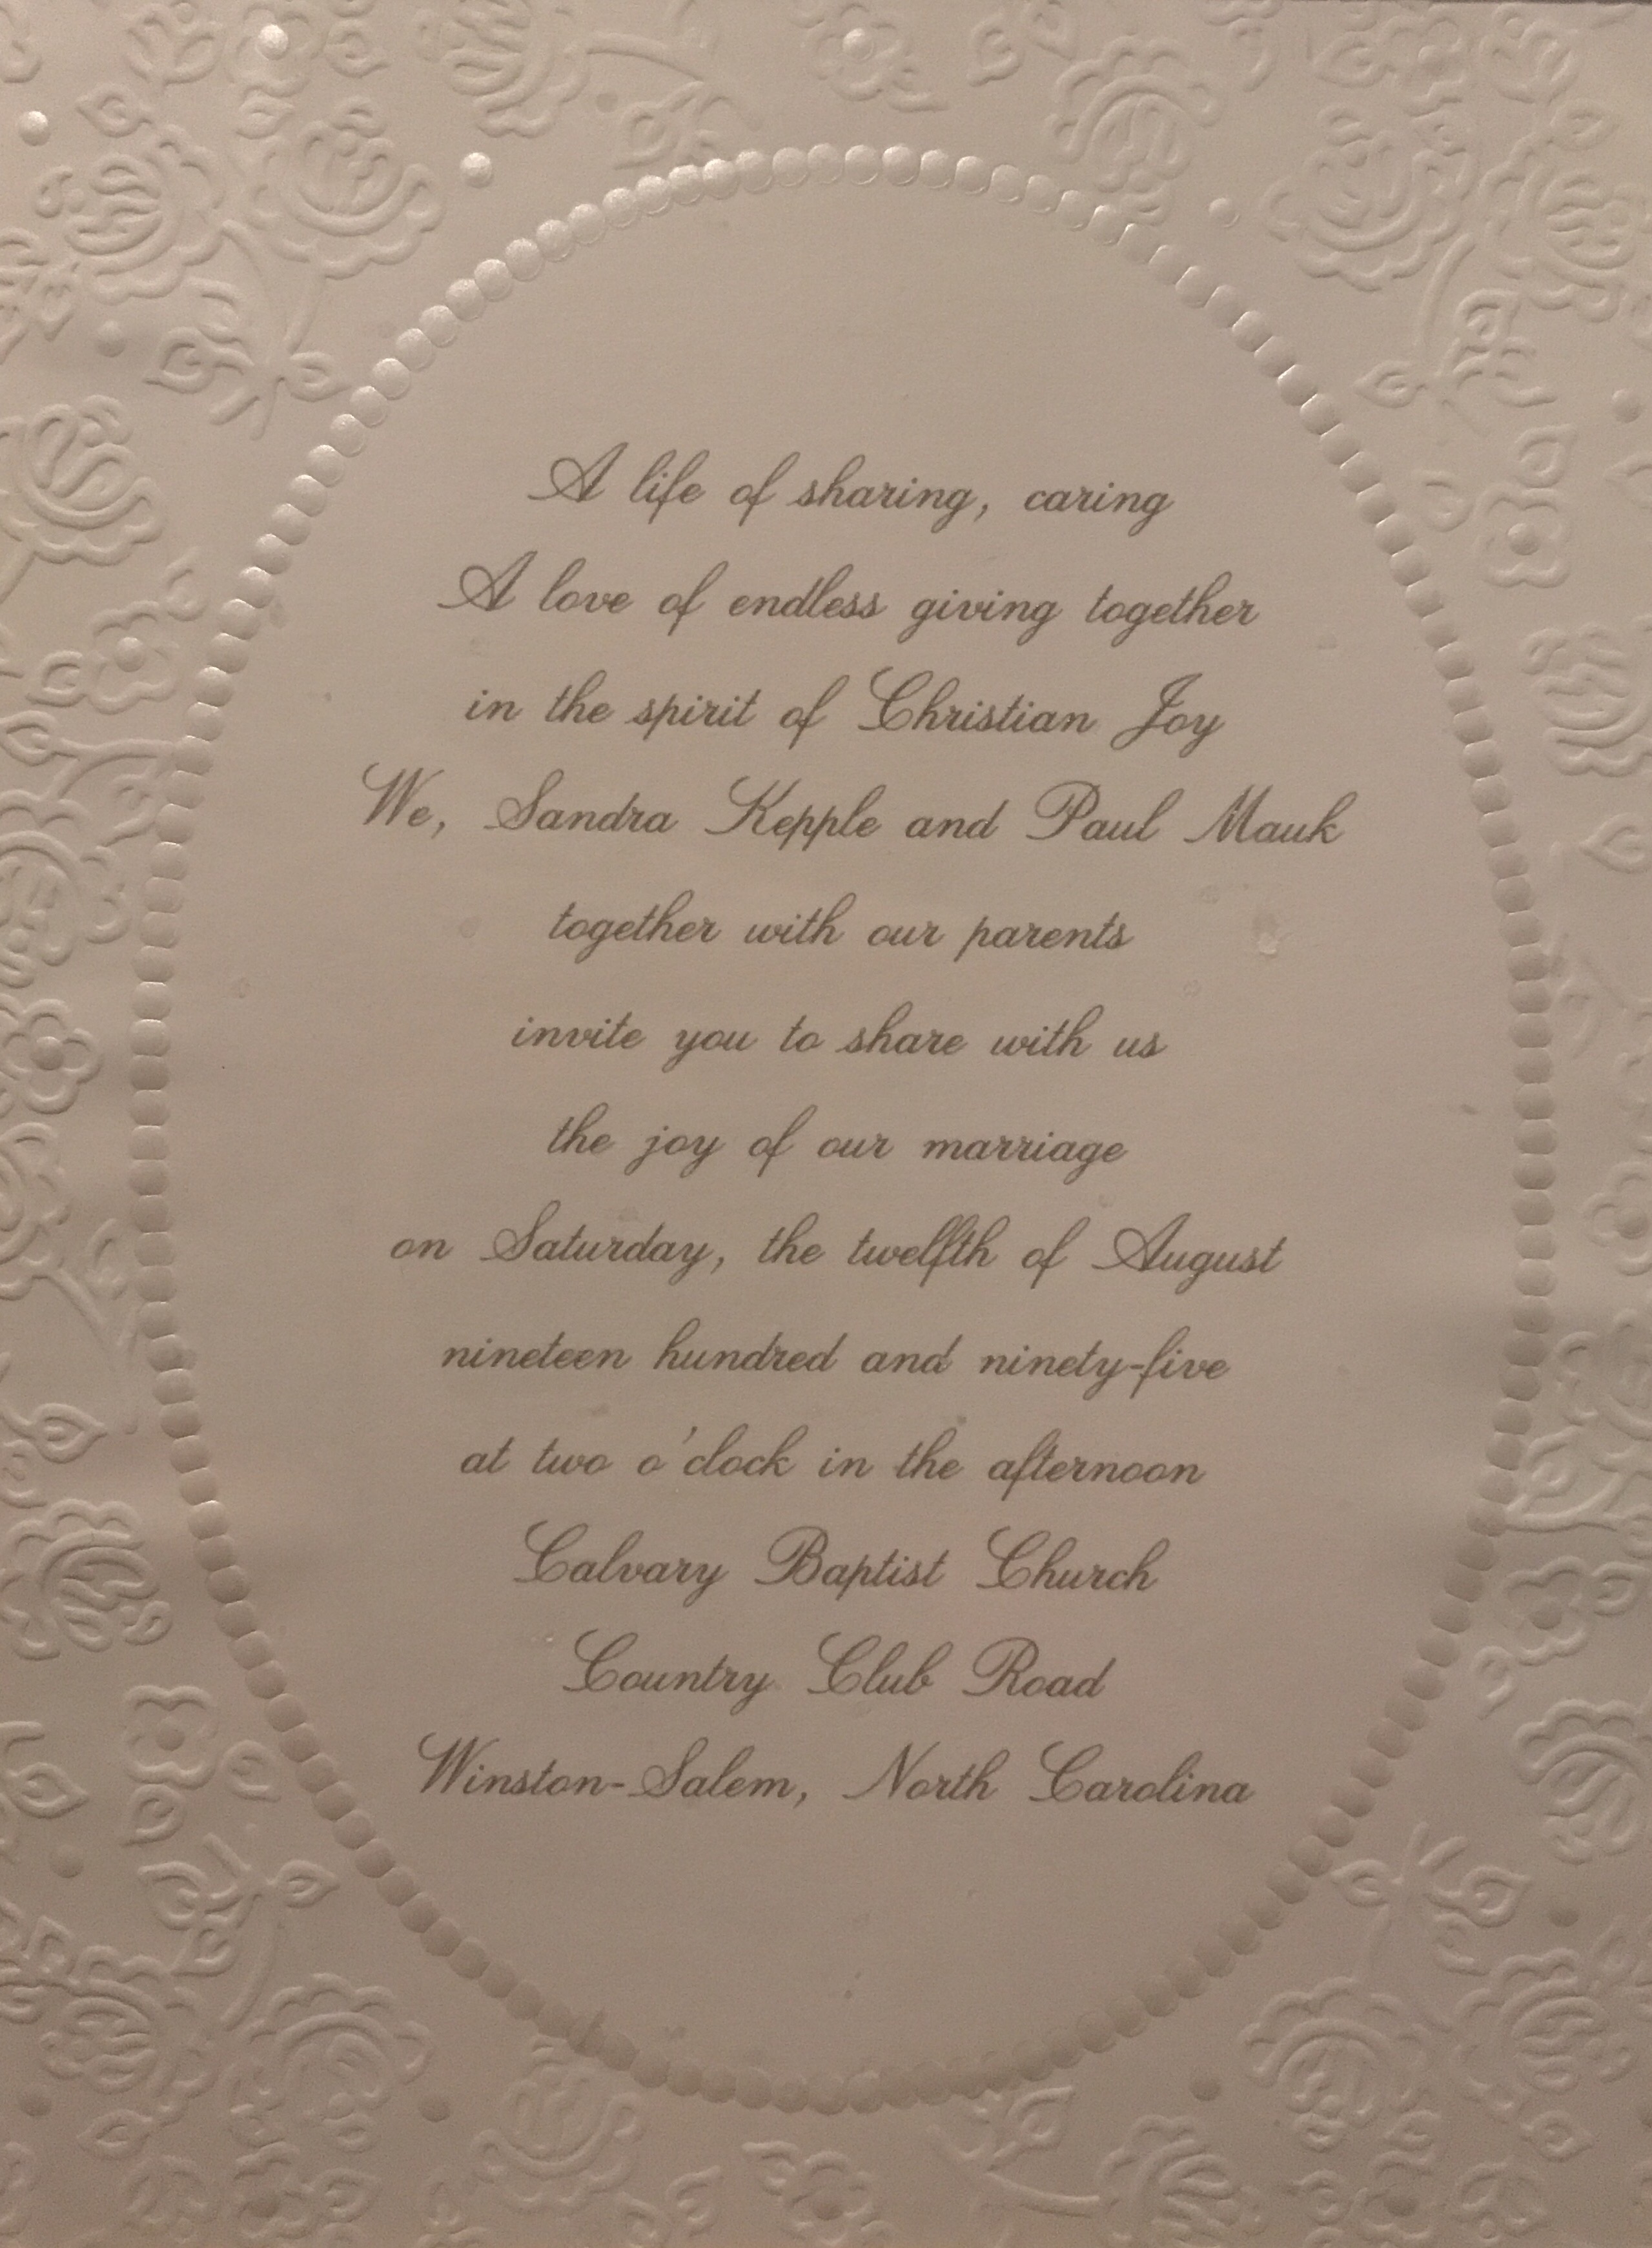 A life of sharing, caring
A love of endless giving together
in the spirit of Christian Joy
We, Sandra Kepple and Paul Mauk
together with our parents
invite you to share with us
the joy of our marriage
on Saturday, the twelfth of August
nineteen hundred and ninety-five
at two o'clock in the afternoon
Calvary Baptist Church
Country Club Road
Winston-Salem, North Carolina